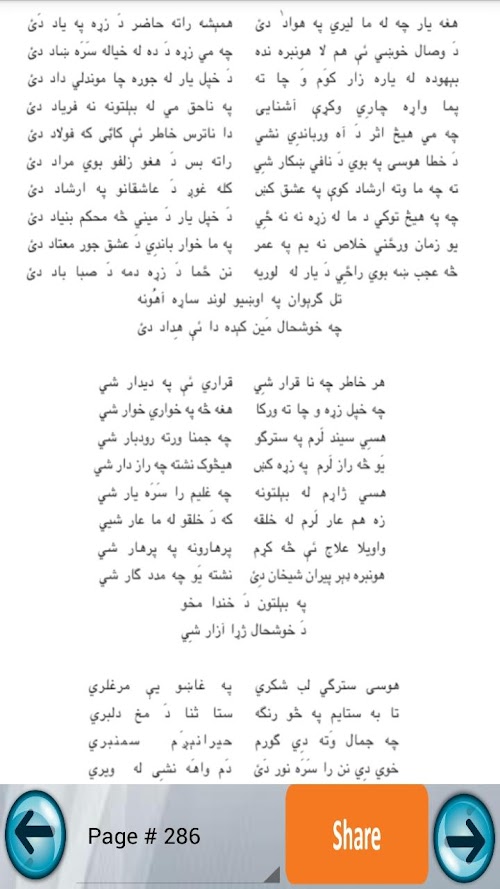 هغه يار چه له ما ليري په هوادٰ دئ همېشه راته حاضر دَ زړه په ياد دَئ
دَ وصال خوښي ئې هم لا هونبره نده چه مي زړه دَ ده له خياله سَرَه ښاد دئ
بېهوده له ياره زار کوَم وَ چا ته دَ خپل يار له جوره چا موندلي داد دئ
پما واړه چارې وکړې آشنايی په ناحق مي له بېلتونه نه فرياد دئ
چه مي هيڅ اثر دَ آه ورباندي نشي دا ناترس خاطر ئې کاڼی که فولاد دئ
دَ خطا هوسی په بوي دَ نافي ښکار شي راته بس دَ هغو زلفو بوي مراد دئ
ته چه ما وته ارشاد کوې په عشق کښ کله غوږ دَ عاشقانو په ارشاد دئ
چه په هيڅ توکي د ما له زړه نه نه ځي دَ خپل يار دَ ميني څه محکم بنياد دئ
يو زمان ورځني خلاص نه يم په عمر په ما خوار باندي دَ عشق جور معتاد دئ
څه عجب ښه بوي راځي دَ يار له لوريه نن ځما دَ زړه دمه دَ صبا باد دئ
تل گرېوان په اوښيو لوند ساړه آهُونه
چه خوشحال مَين کېده دا ئې هِداد دئ
هر خاطر چه نا قرار شي قراري ئې په ديدار شي
چه خپل زړه و چا ته ورکا هغه څه په خواري خوار شي
هسي سيند لَرم په سترگو چه جمنا ورته رودبار شي
يَو څه راز لَرم په زړه کښ هيڅوک نشته چه راز دار شي
هسي ژاړم له بېلتونه چه غليم را سَرَه يار شي
زه هم عار لَرم له خلقه که دَ خلقو له ما عار شي
واويلا علاج ئې څه کړم پرهارونه په پرهار شي
هونبره ډېر پيران شيخان دِئ نشته يَو چه مدد گار شي
په بېلتون دَ خندا مخو
دَ خوشحال ژړا آزار شي
هوسی سترگي لب شکري په غاښو يې مرغلري
تا به ستايم په څو رنگه ستا ثنا دَ مخ دلبري
چه جمال وَته دِي گورم حيرانېږم سمنبري
خوي دِي نن را سَرَه نور دَئ دَم واهَه نشي له ويري
Page # 286
Share